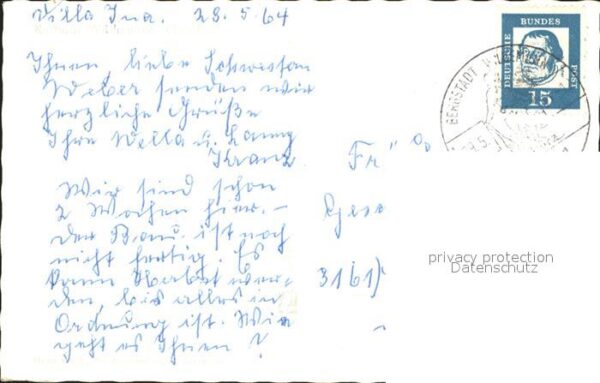 Villa Ina. 28.5.64
Ihnen liebe Schwester
Weber senden wir
herzliche Grüße
Ihre Wella u. Lanny
Kranz
Wir sind schon
2 Wochen hier. –
Der Bau ist noch
nicht fertig. Es
kann Herbst wer-
den, bis alles in
Ordnung ist. Wie
geht es Ihnen?
Fr
Gese
3161)
DEUTSCHE BUNDES POST
15
BERGSTADT
privacy protection
Datenschutz